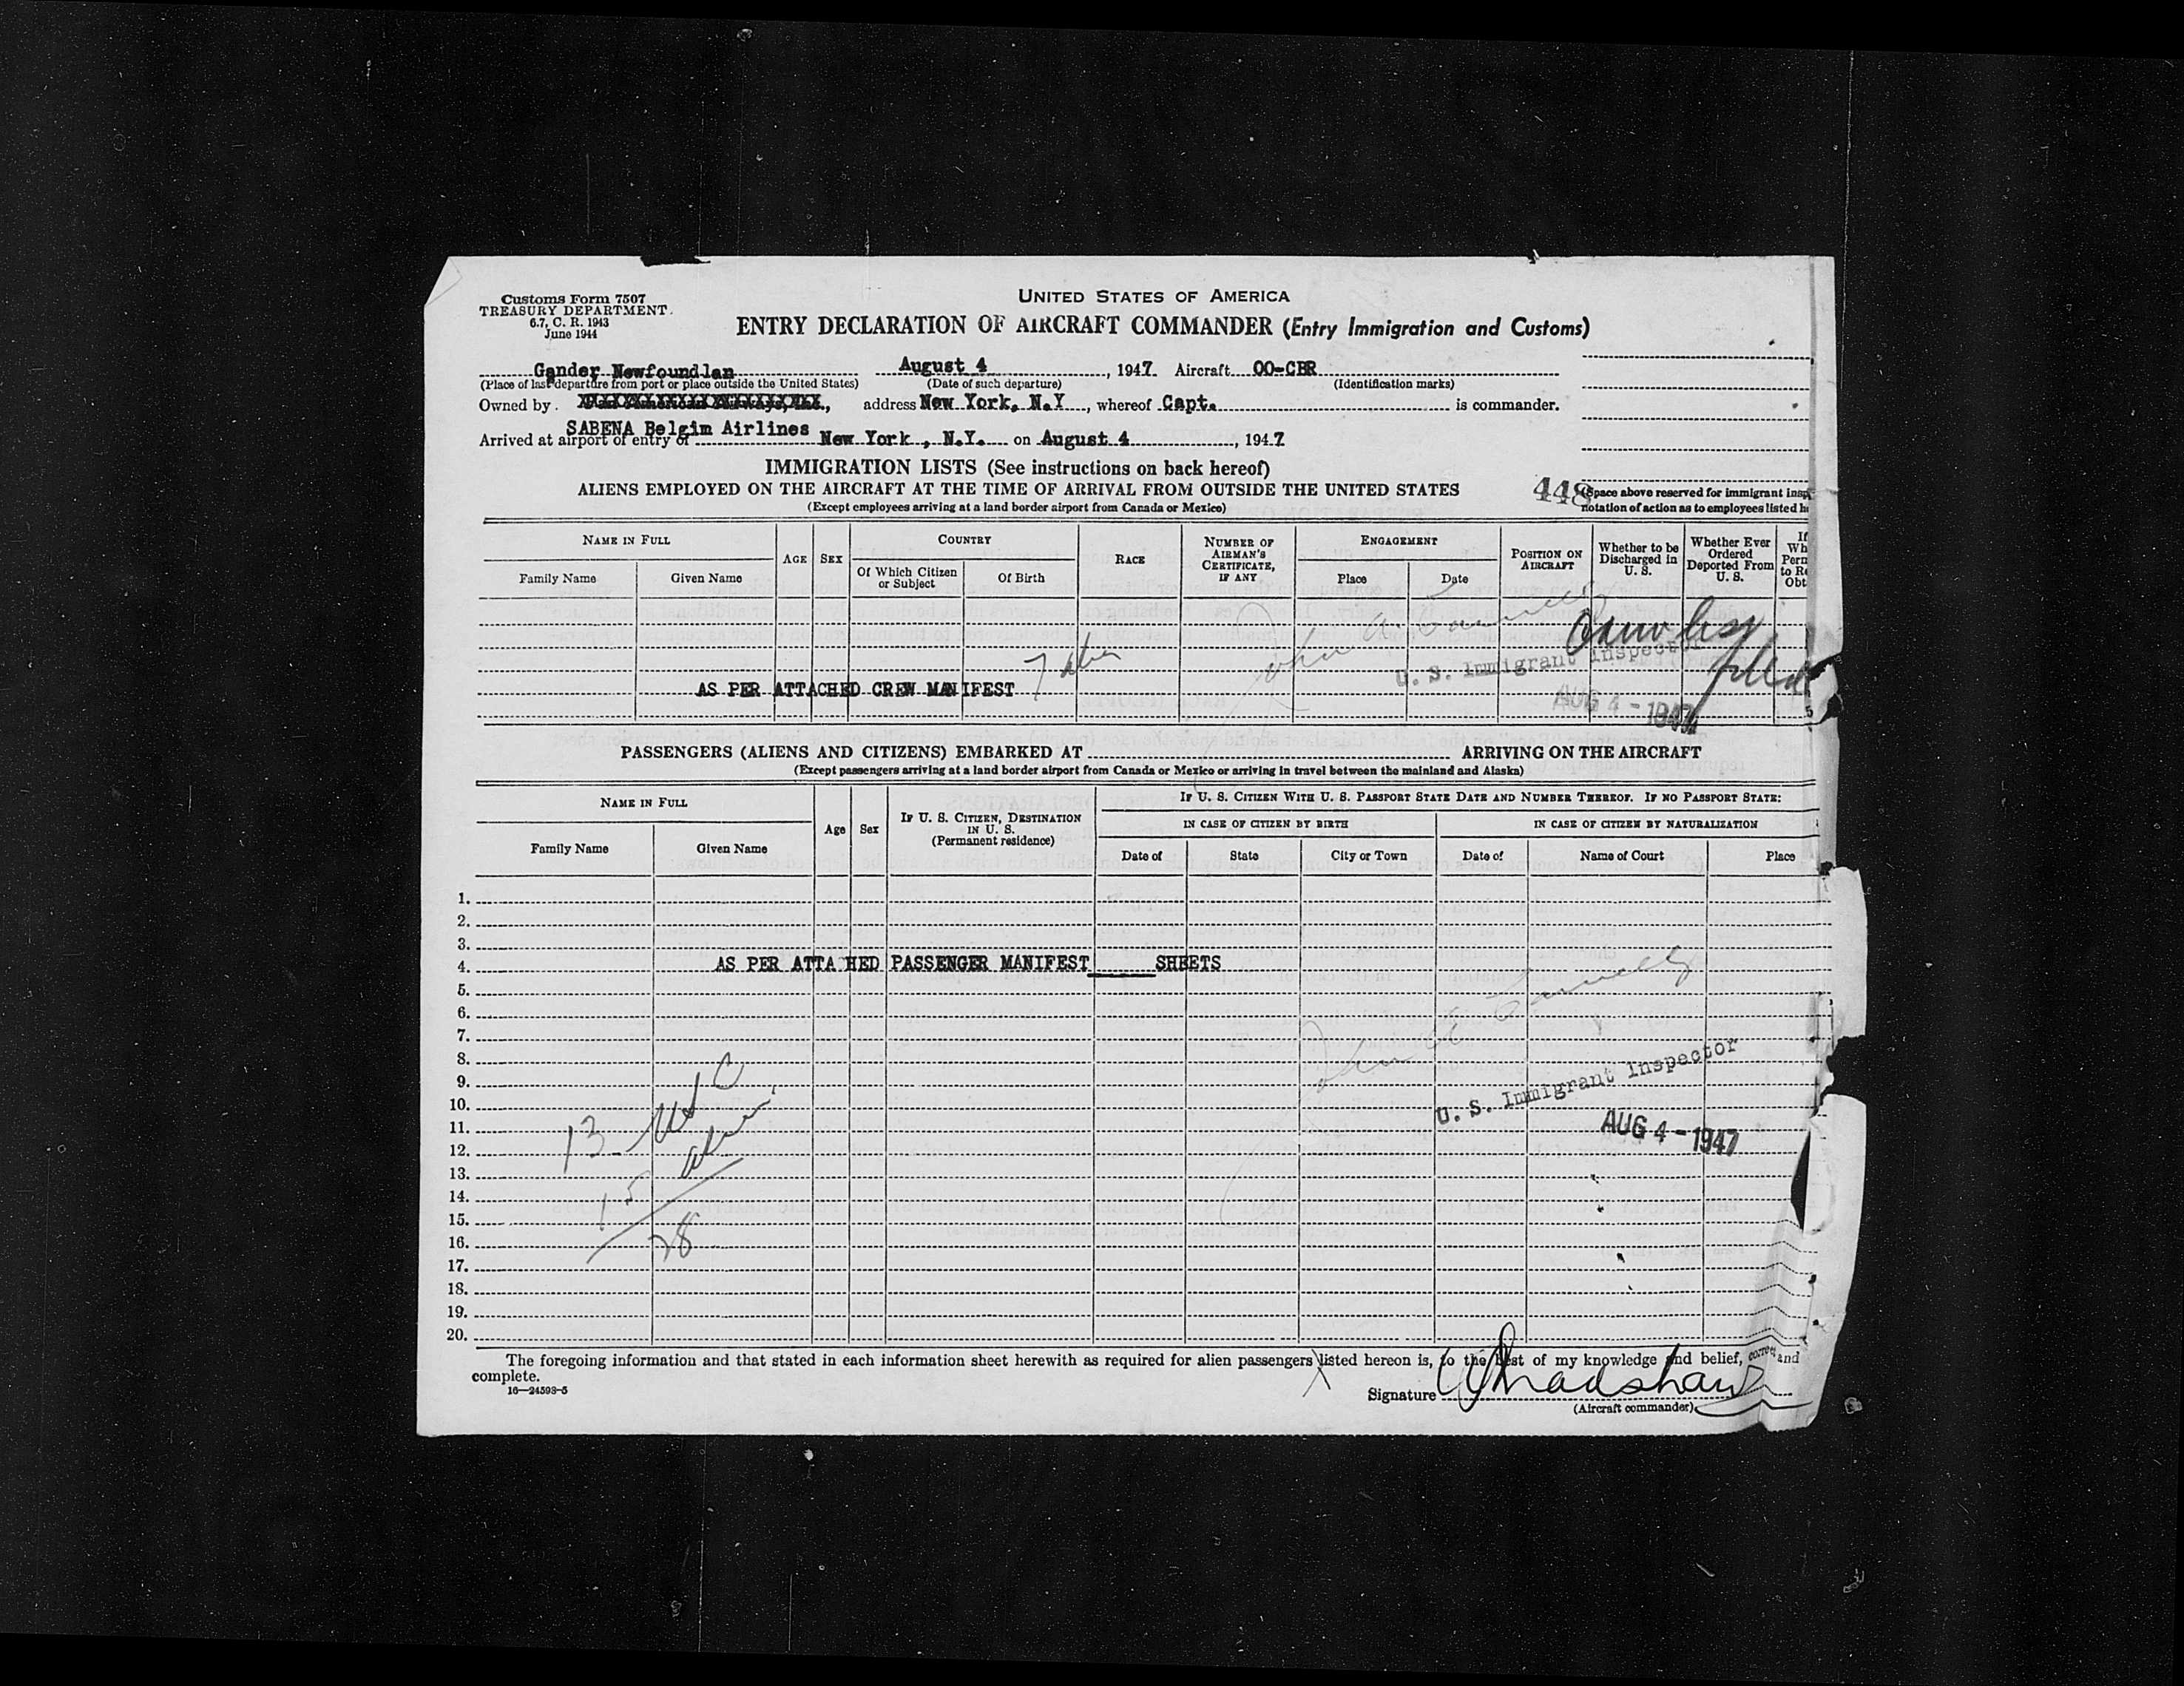 Customs Form 7507
TREASURY DEPARTMENT.
6.7, C. R. 1943
June 1944
UNITED STATES OF AMERICA
ENTRY DECLARATION OF AIRCRAFT COMMANDER (Entry Immigration and Customs)
Gander Newfoundlan August 4, 1947 Aircraft OO-CBR
(Place of last departure from port or place outside the United States) (Date of such departure) (Identification marks)
Owned by address New York, N.Y, whereof Capt. is commander.
SABENA Belgim Airlines
Arrived at airport of entry of New York, N.Y. on August 4, 1947
IMMIGRATION LISTS (See instructions on back hereof)
ALIENS EMPLOYED ON THE AIRCRAFT AT THE TIME OF ARRIVAL FROM OUTSIDE THE UNITED STATES
(Except employees arriving at a land border airport from Canada or Mexico)
448
(Space above reserved for immigrant insp
notation of action as to employees listed h
NAME IN FULL
Family Name Given Name
AGE
SEX
COUNTRY
Of Which Citizen or Subject
Of Birth
RACE
NUMBER OF AIRMAN'S CERTIFICATE, IF ANY
ENGAGEMENT
Place Date
POSITION ON AIRCRAFT
Whether to be Discharged in U. S.
Whether Ever Ordered Deported From U. S.
If
Wh
Perm
to Re
Obt
U. S. Immigrant Inspector
AS PER ATTACHED CREW MANIFEST
AUG 4 - 1947
5
PASSENGERS (ALIENS AND CITIZENS) EMBARKED AT ARRIVING ON THE AIRCRAFT
(Except passengers arriving at a land border airport from Canada or Mexico or arriving in travel between the mainland and Alaska)
NAME IN FULL
Family Name Given Name
Age
Sex
IF U. S. CITIZEN, DESTINATION IN U. S.
(Permanent residence)
IF U. S. CITIZEN WITH U. S. PASSPORT STATE DATE AND NUMBER THEREOF. IF NO PASSPORT STATE:
IN CASE OF CITIZEN BY BIRTH
IN CASE OF CITIZEN BY NATURALIZATION
Date of State City or Town Date of Name of Court Place
1.
2.
3.
4. AS PER ATTA HED PASSENGER MANIFEST SHEETS
5.
6.
7.
8.
9.
10.
U. S. Immigrant Inspector
11.
AUG 4 - 1947
12.
13 USC
13.
15 alien
14.
15.
16.
28
17.
18.
19.
20.
The foregoing information and that stated in each information sheet herewith as required for alien passengers listed hereon is, to the best of my knowledge and belief, correct and
complete.
16—24593-5
Signature Bradshaw
(Aircraft commander)